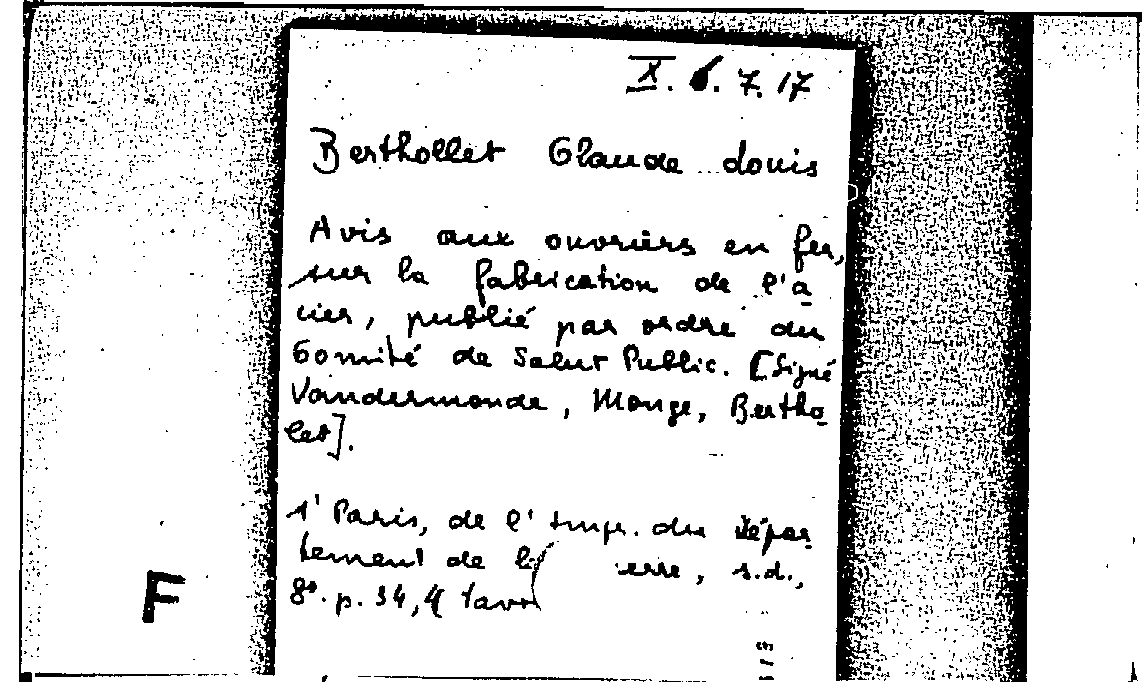 X. 6. 7. 17
Berthollet Claude Louis
Avis aux ouvriers en fer,
sur la fabrication de l'a
cier, publié par ordre du
Comité de Salut Public. [Signé
Vandermonde, Monge, Bertho
let].
A Paris, de l'Imp. du Dépar
tement de erre, s.d.,
8°. p. 34, 4 tavo
F